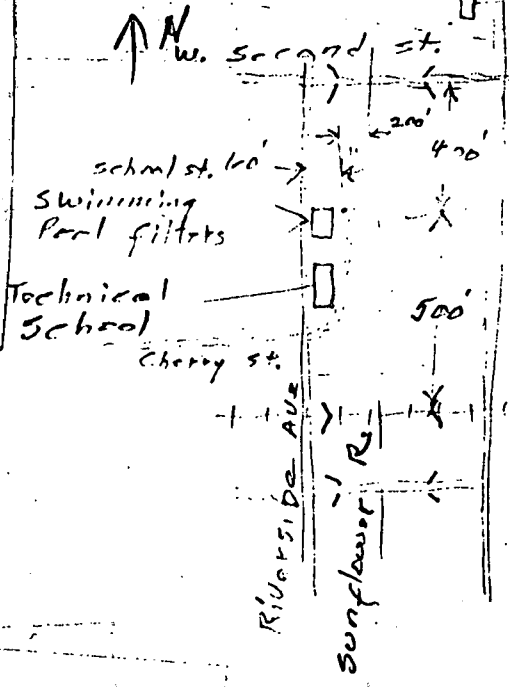 N
w. second st.
200'
400'
school st. 60'
Swimming
Pool filters
Technical
School
500'
Cherry st.
Riverside Ave
Sunflower R.